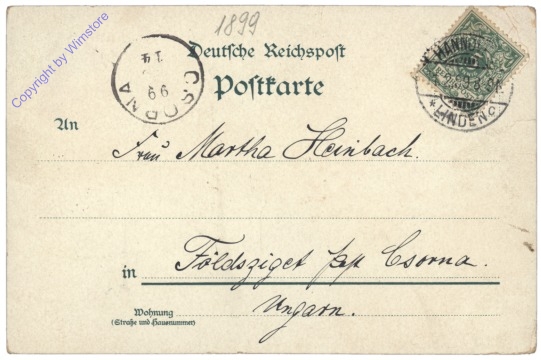 1899
Copyright by Wimstore
CSORNA
99
14
HANNOVER
*LINDEN
Deutsche Reichspost
Postkarte
An
Frau Martha Heinbach.
in Földsziget Csorna.
Ungarn.
Wohnung
(Straße und Hausnummer)